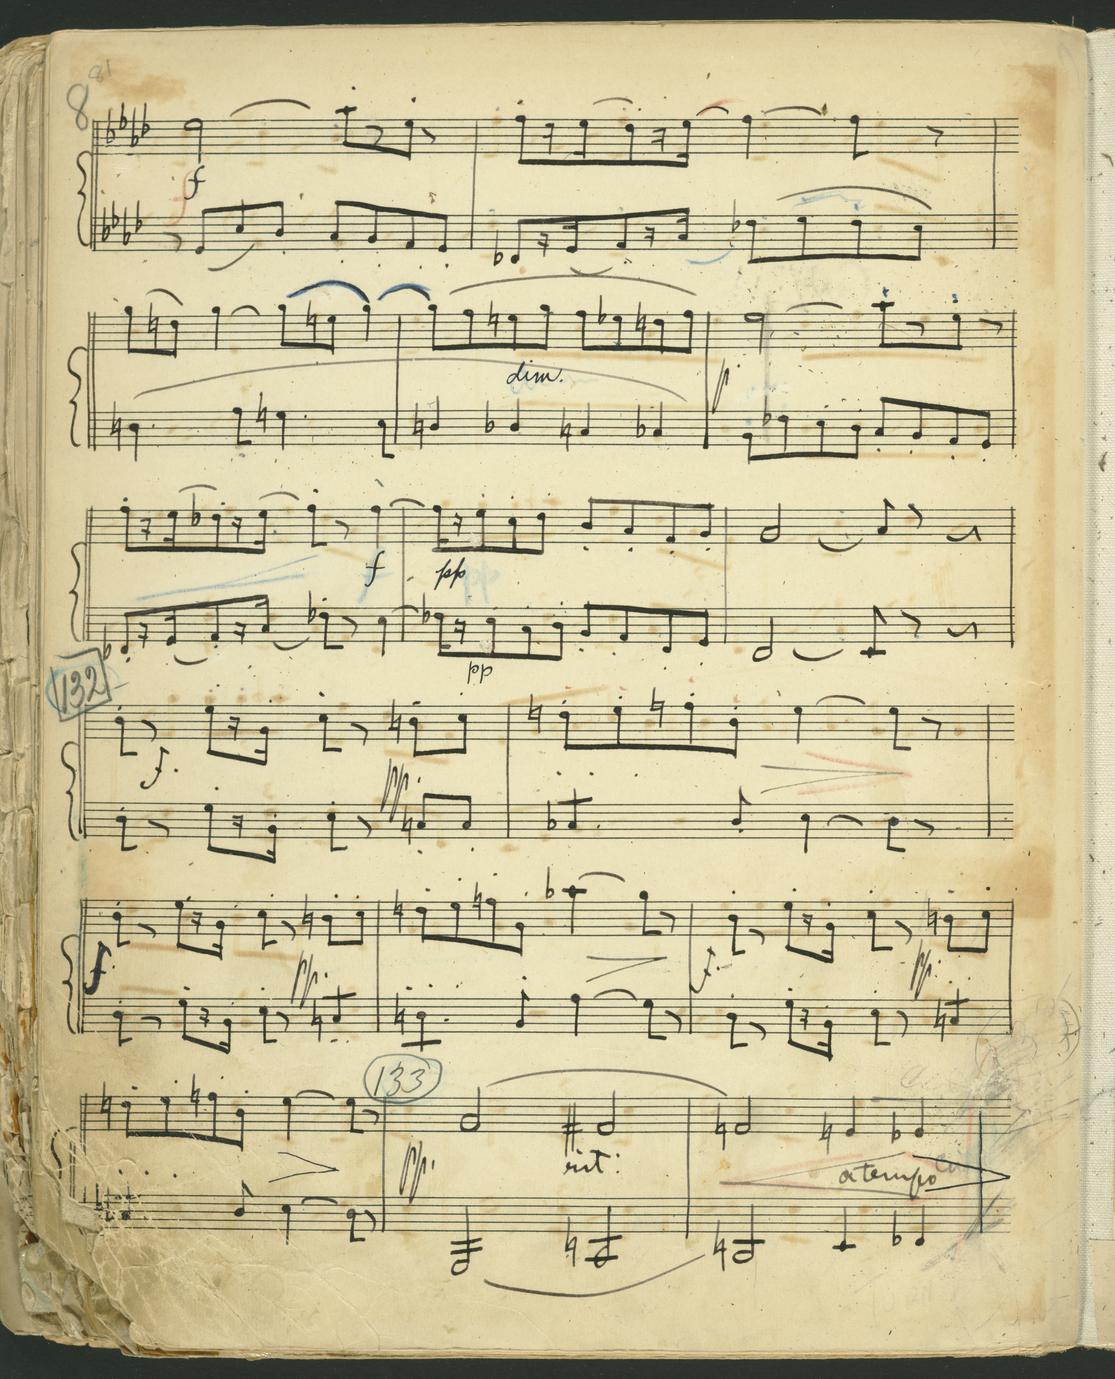 81
8
f
dim.
p
f pp
pp
132
f. pp.
f pp. f. pp.
133
pp. rit: a tempo